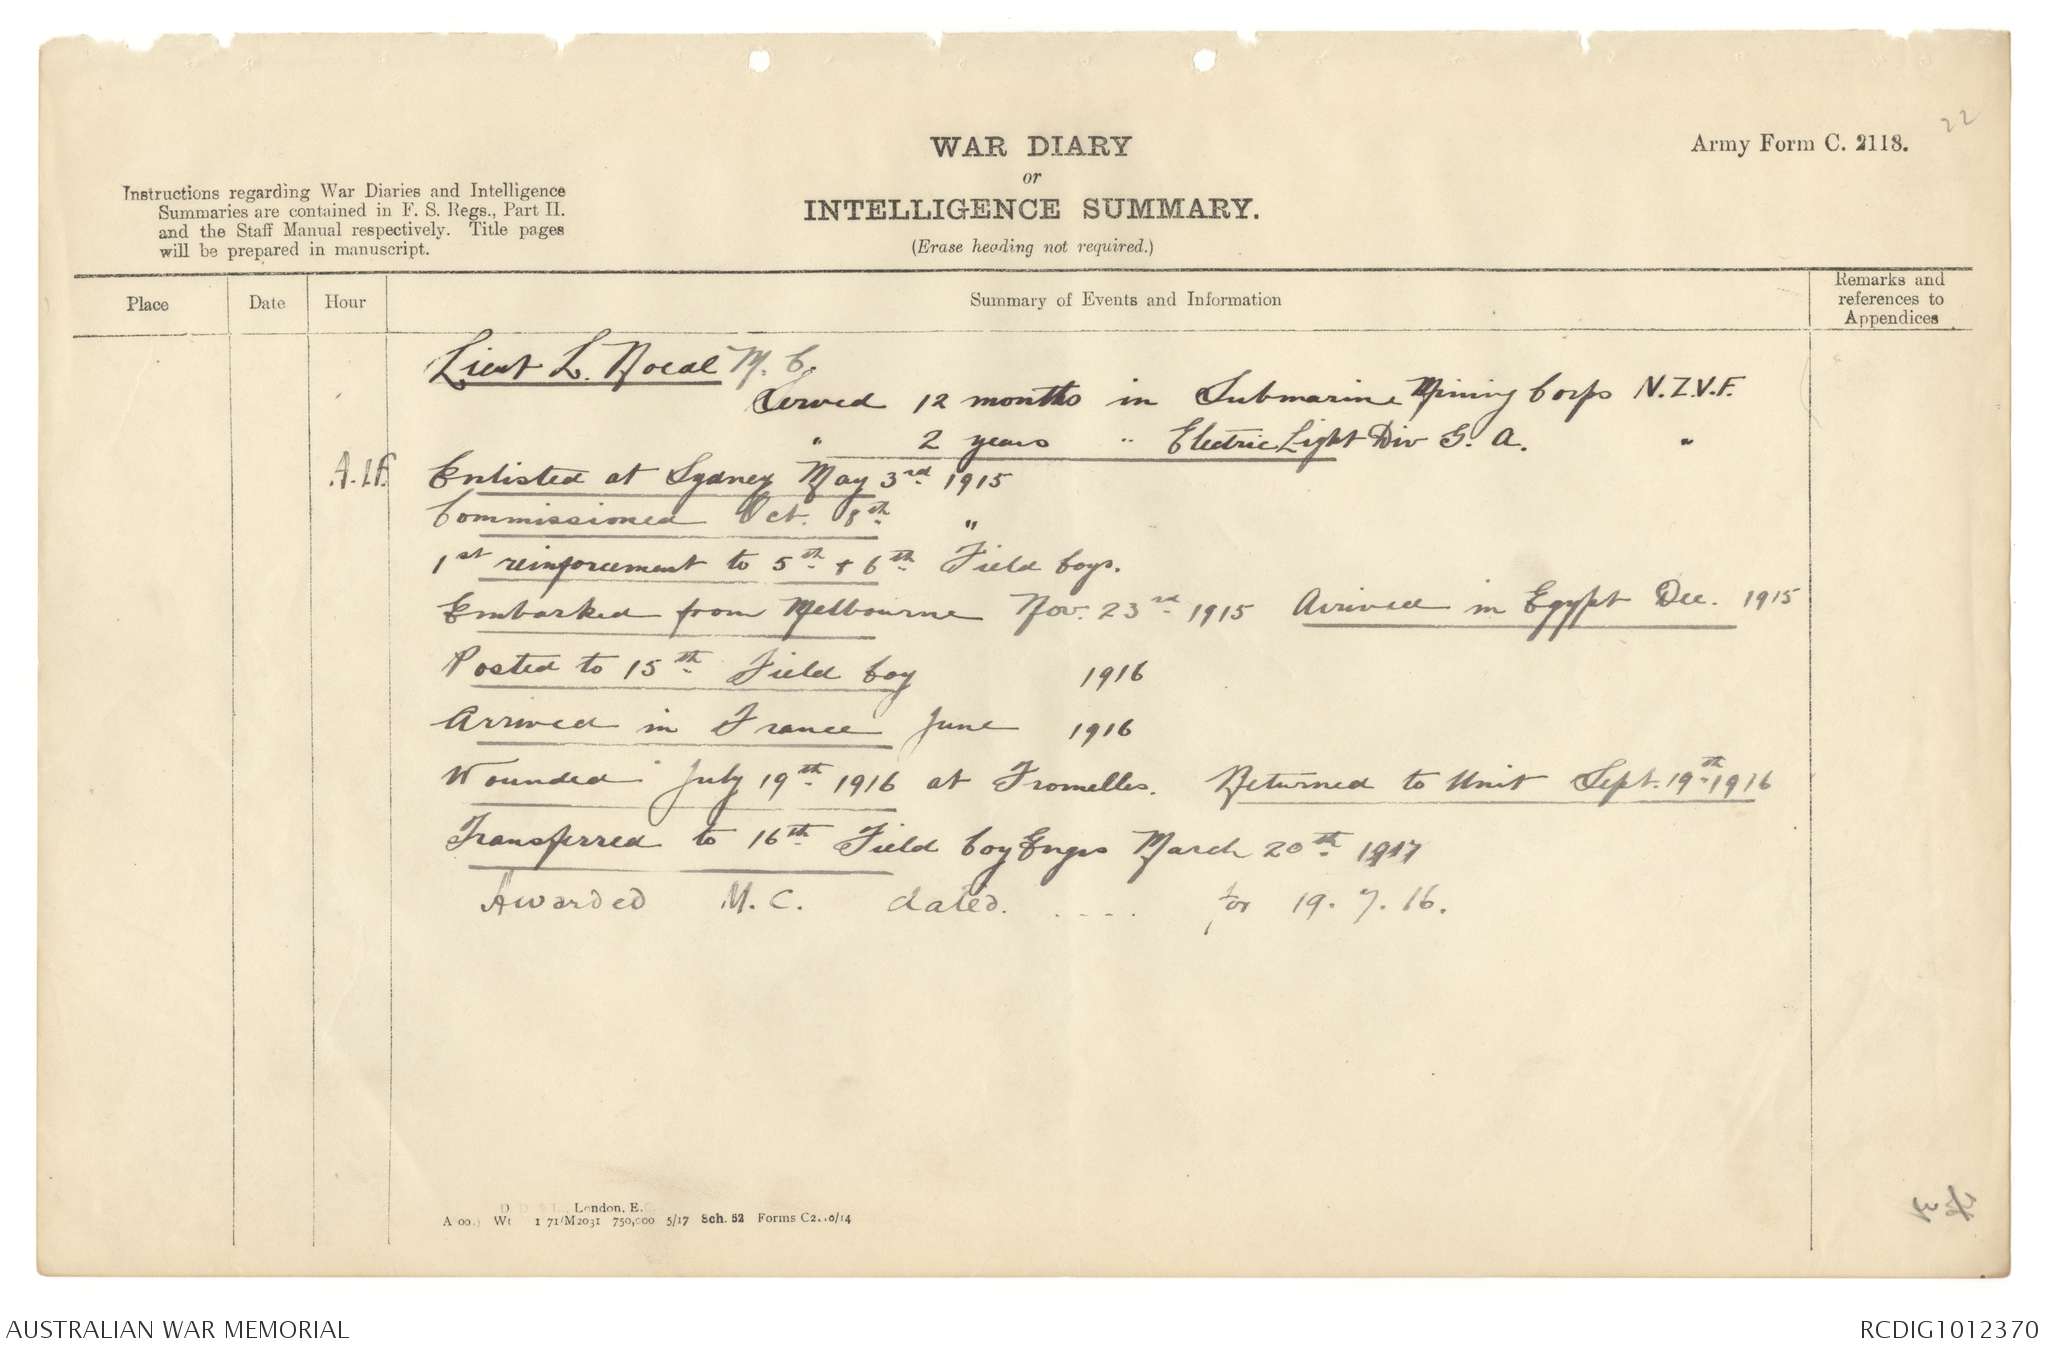 22
WAR DIARY
or
INTELLIGENCE SUMMARY.
(Erase heading not required.)
Army Form C. 2118.
Instructions regarding War Diaries and Intelligence
Summaries are contained in F. S. Regs., Part II.
and the Staff Manual respectively. Title pages
will be prepared in manuscript.
Place
Date
Hour
Summary of Events and Information
Remarks and
references to
Appendices
Lieut L. Noedl M. C.
Served 12 months in Submarine Mining Corps N.Z.V.F.
" 2 years " Electric Light Div G. A. "
A.I.F. Enlisted at Sydney May 3rd. 1915
Commissioned Oct. 8th "
1st reinforcement to 5th. & 6th. Field Coys.
Embarked from Melbourne Nov. 23rd. 1915 Arrived in Egypt Dec. 1915
Posted to 15th. Field Coy 1916
Arrived in France June 1916
Wounded July 19th. 1916 at Fromelles. Returned to Unit Sept. 19th. 1916
Transferred to 16th. Field Coy Engrs March 20th. 1917
Awarded M.C. dated. .... for 19. 7. 16.
London, E.
1 71/M2031 750,000 5/17 Sch. 52 Forms
AUSTRALIAN WAR MEMORIAL
RCDIG1012370